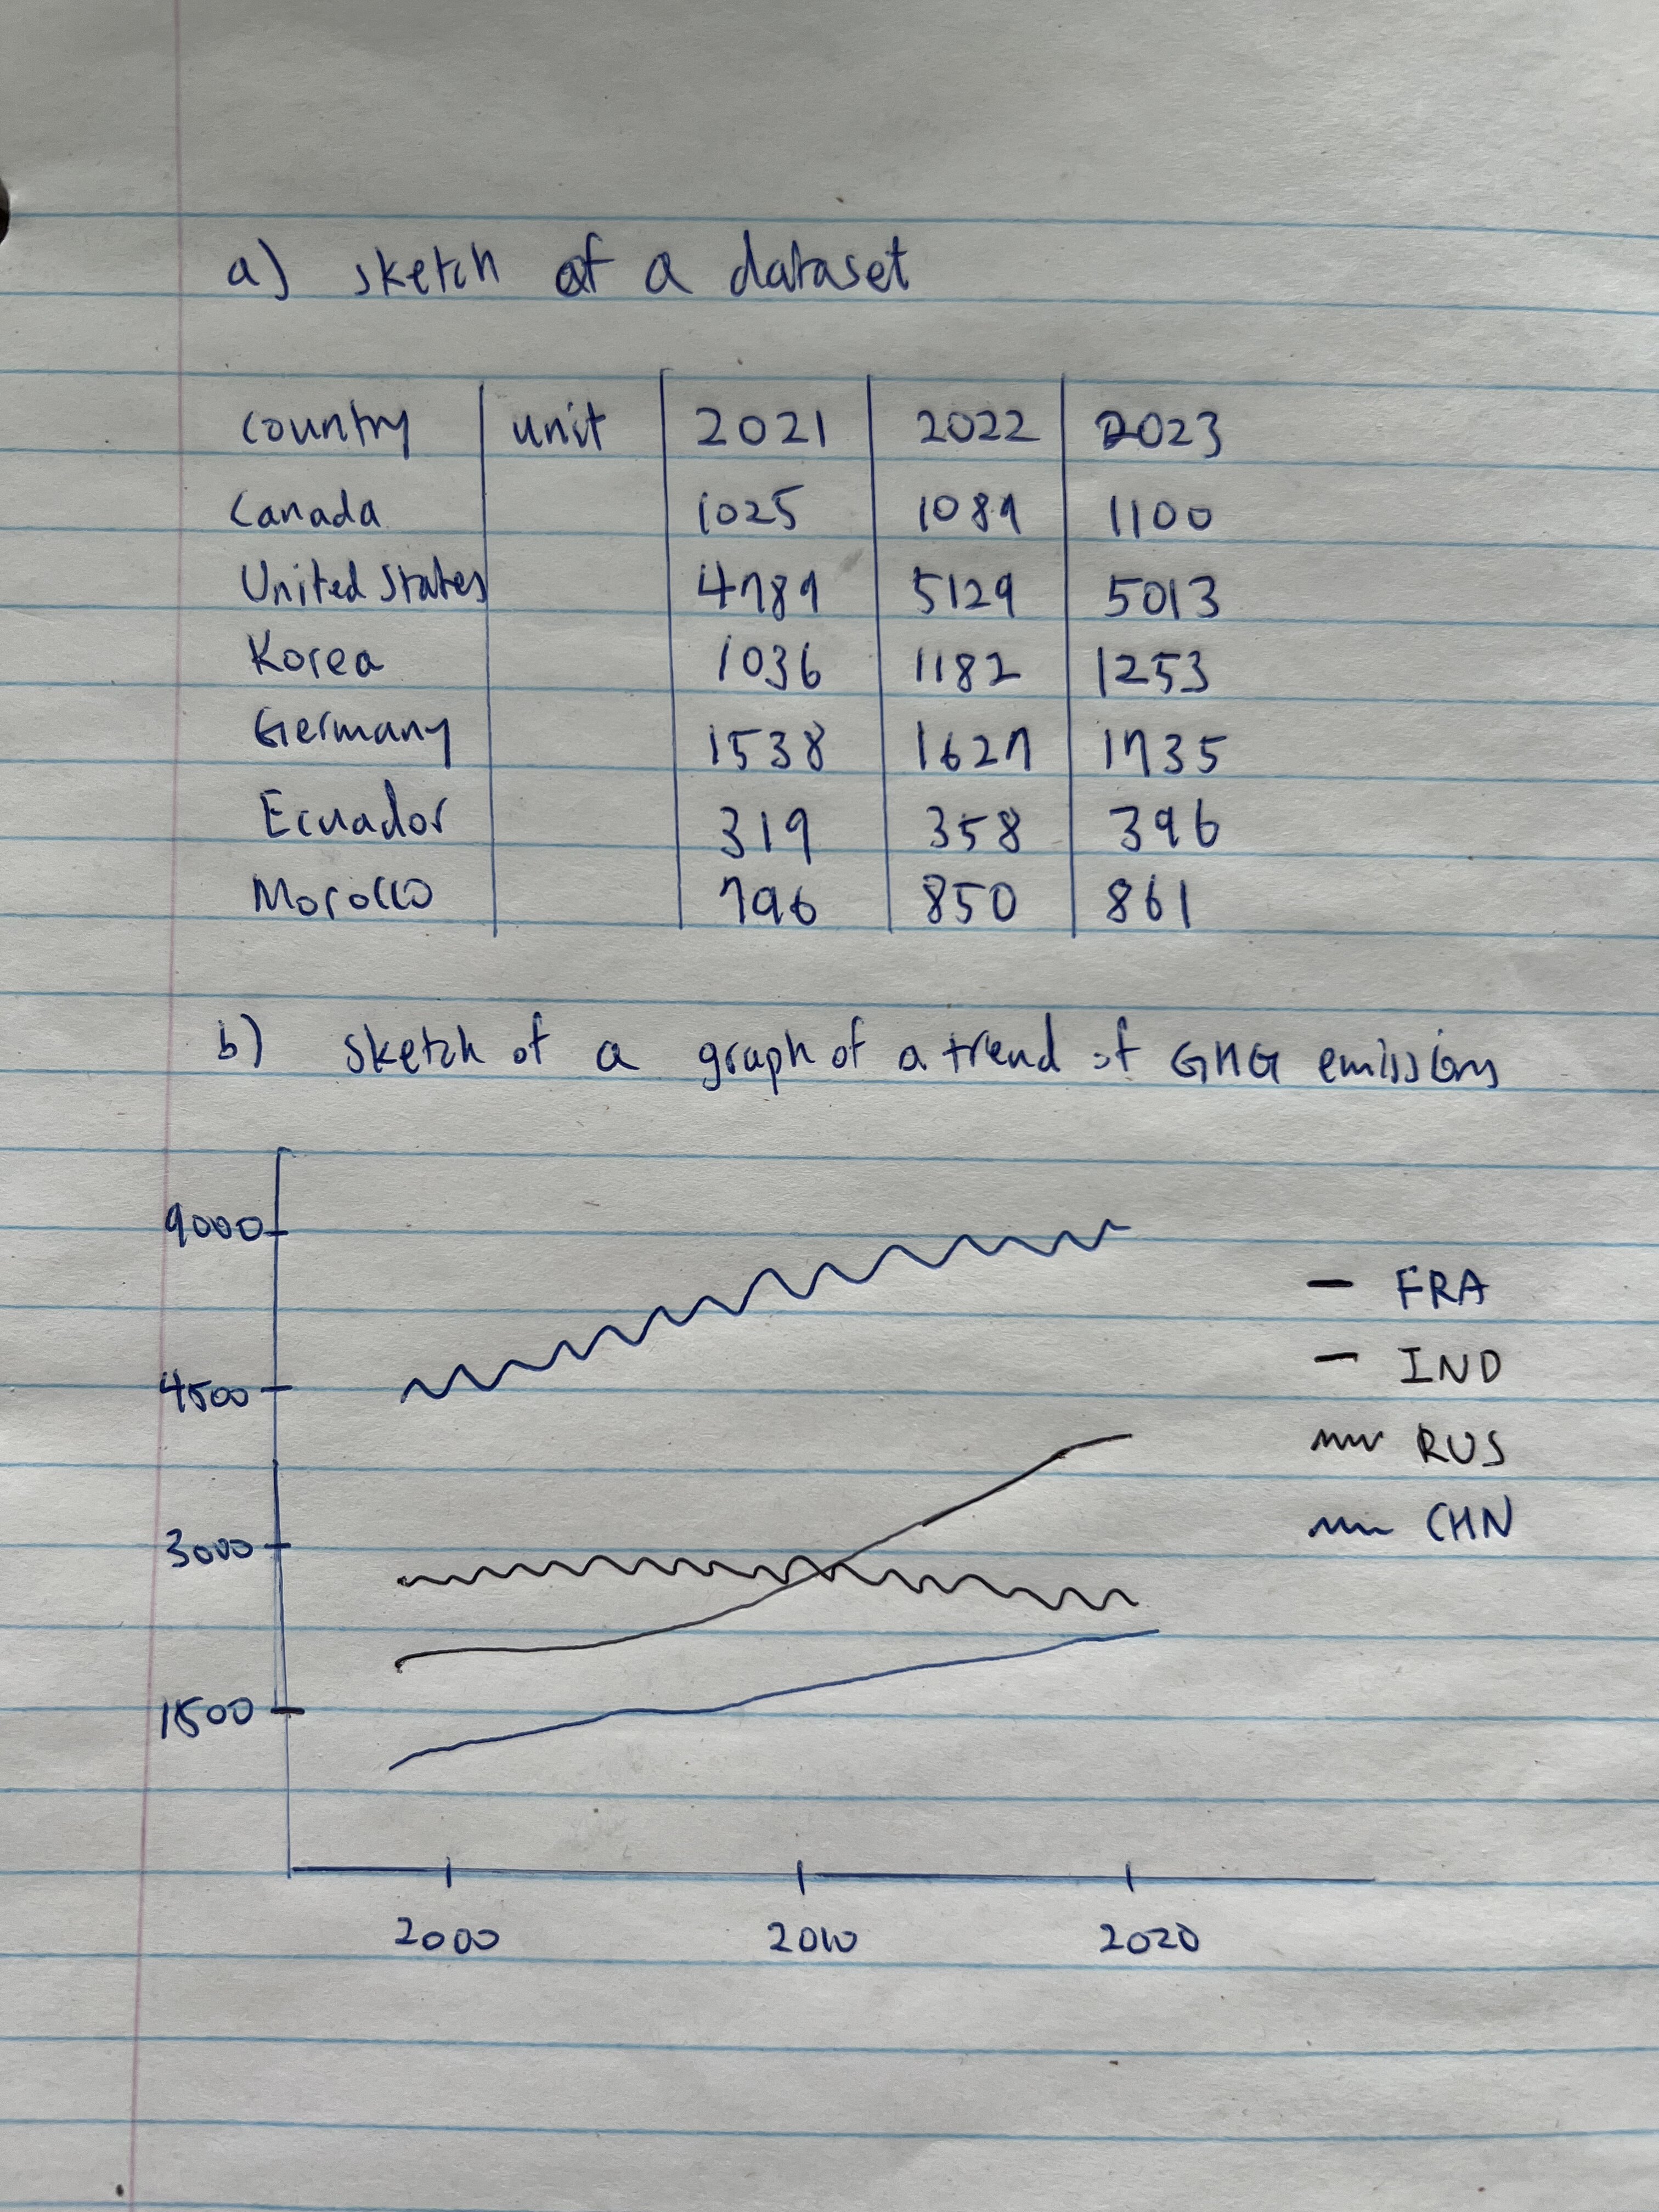 a) sketch of a dataset
country unit 2021 2022 2023
Canada 1025 1089 1100
United States 4789 5129 5013
Korea 1036 1182 1253
Germany 1538 1627 1735
Ecuador 319 358 396
Morocco 796 850 861
b) sketch of a graph of a trend of GHG emissions
9000
4500
3000
1500
FRA
IND
RUS
CHN
2000 2010 2020